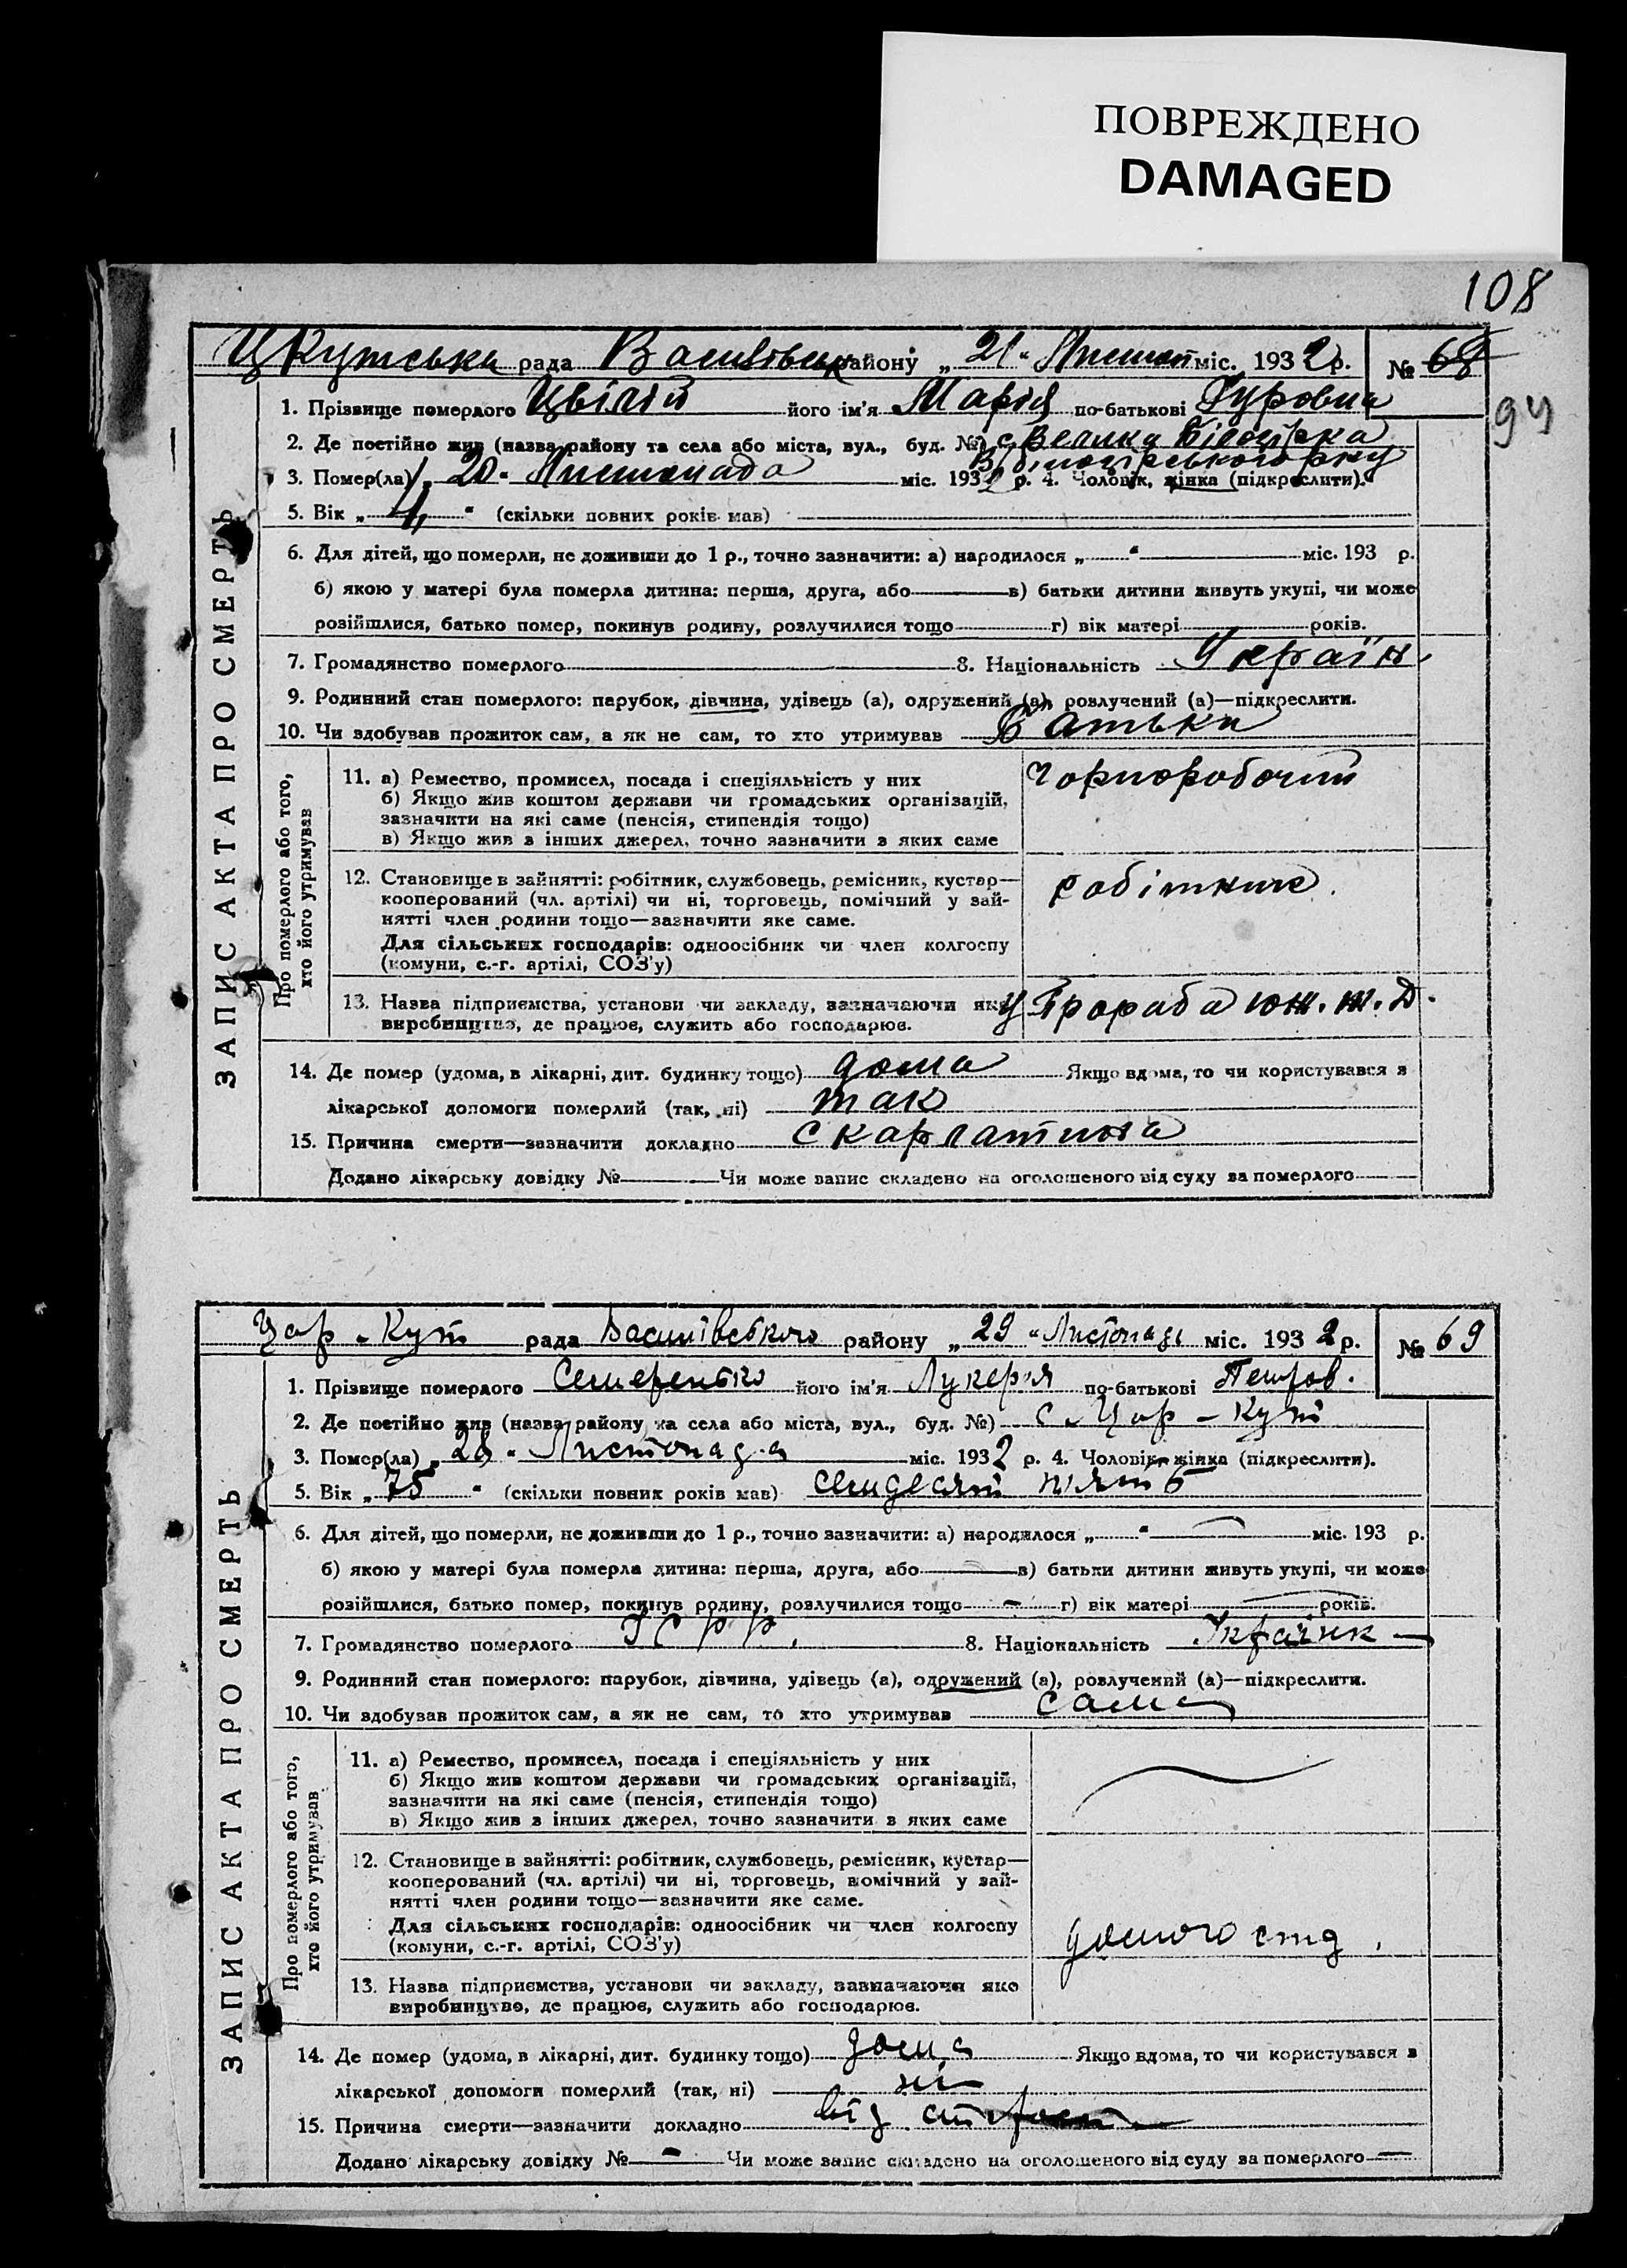 ПОВРЕЖДЕНО
DAMAGED
108
ЦКутська рада Василівськ району „21“ Листоп міс. 1932 р. № 68
94
1. Прізвище померлого Цвілій його ім'я Марія по-батькові Гуровна
2. Де постійно жив (назва району та села або міста, вул., буд. №) с. Велика Білозірка
В Білозірського р-ну
3. Помер(ла) „20“ Листопада міс. 1932 р. 4. Чоловік, жінка (підкреслити).
5. Вік „4“ (скільки повних років мав)
6. Для дітей, що померли, не доживши до 1 р., точно зазначити: а) народилося „ “ міс. 193 р.
б) якою у матері була померла дитина: перша, друга, або в) батьки дитини живуть укупі, чи може
розійшлися, батько помер, покинув родину, розлучилися тощо г) вік матері років.
7. Громадянство померлого 8. Національність Україн.
9. Родинний стан померлого: парубок, дівчина, удівець (а), одружений (а), розлучений (а)—підкреслити.
10. Чи здобував прожиток сам, а як не сам, то хто утримував Батьки
ЗАПИС АКТА ПРО СМЕРТЬ
Про померлого або того,
хто його утримував
11. а) Ремество, промисел, посада і спеціяльність у них Чорноробочий
б) Якщо жив коштом держави чи громадських організацій,
зазначити на які саме (пенсія, стипендія тощо)
в) Якщо жив з інших джерел, точно зазначити з яких саме
12. Становище в зайнятті: робітник, службовець, ремісник, кустар—
кооперований (чл. артілі) чи ні, торговець, помічний у зай- робітник
нятті член родини тощо—зазначити яке саме.
Для сільських господарів: одноосібник чи член колгоспу
(комуни, с.-г. артілі, СОЗ'у)
13. Назва підприємства, установи чи закладу, зазначаючи яке У Прораба юж. ж. д.
виробництво, де працює, служить або господарює.
14. Де помер (удома, в лікарні, дит. будинку тощо) дома Якщо вдома, то чи користувався з
лікарської допомоги померлий (так, ні) так
15. Причина смерти—зазначити докладно скарлатина
Додано лікарську довідку № Чи може запис складено на оголошеного від суду за померлого
Цар-Кут рада Василівського району „29“ Листопада міс. 1932 р. № 69
1. Прізвище померлого Семеренько його ім'я Лукерія по-батькові Петров.
2. Де постійно жив (назва району та села або міста, вул., буд. №) с. Цар-Кут
3. Помер(ла) „28“ Листопада міс. 1932 р. 4. Чоловік, жінка (підкреслити).
5. Вік „75“ (скільки повних років мав) семидесят п'ять
6. Для дітей, що померли, не доживши до 1 р., точно зазначити: а) народилося „ “ міс. 193 р.
б) якою у матері була померла дитина: перша, друга, або в) батьки дитини живуть укупі, чи може
розійшлися, батько помер, покинув родину, розлучилися тощо - г) вік матері років.
7. Громадянство померлого УСРР. 8. Національність Українк
9. Родинний стан померлого: парубок, дівчина, удівець (а), одружений (а), розлучений (а)—підкреслити.
10. Чи здобував прожиток сам, а як не сам, то хто утримував сама
ЗАПИС АКТА ПРО СМЕРТЬ
Про померлого або того,
хто його утримував
11. а) Ремество, промисел, посада і спеціяльність у них
б) Якщо жив коштом держави чи громадських організацій,
зазначити на які саме (пенсія, стипендія тощо)
в) Якщо жив з інших джерел, точно зазначити з яких саме
12. Становище в зайнятті: робітник, службовець, ремісник, кустар—
кооперований (чл. артілі) чи ні, торговець, помічний у зай-
нятті член родини тощо—зазначити яке саме.
Для сільських господарів: одноосібник чи член колгоспу
(комуни, с.-г. артілі, СОЗ'у)
13. Назва підприємства, установи чи закладу, зазначаючи яке
виробництво, де працює, служить або господарює.
14. Де помер (удома, в лікарні, дит. будинку тощо) дома Якщо вдома, то чи користувався з
лікарської допомоги померлий (так, ні) ні
15. Причина смерти—зазначити докладно від старости
Додано лікарську довідку № - Чи може запис складено на оголошеного від суду за померлого —